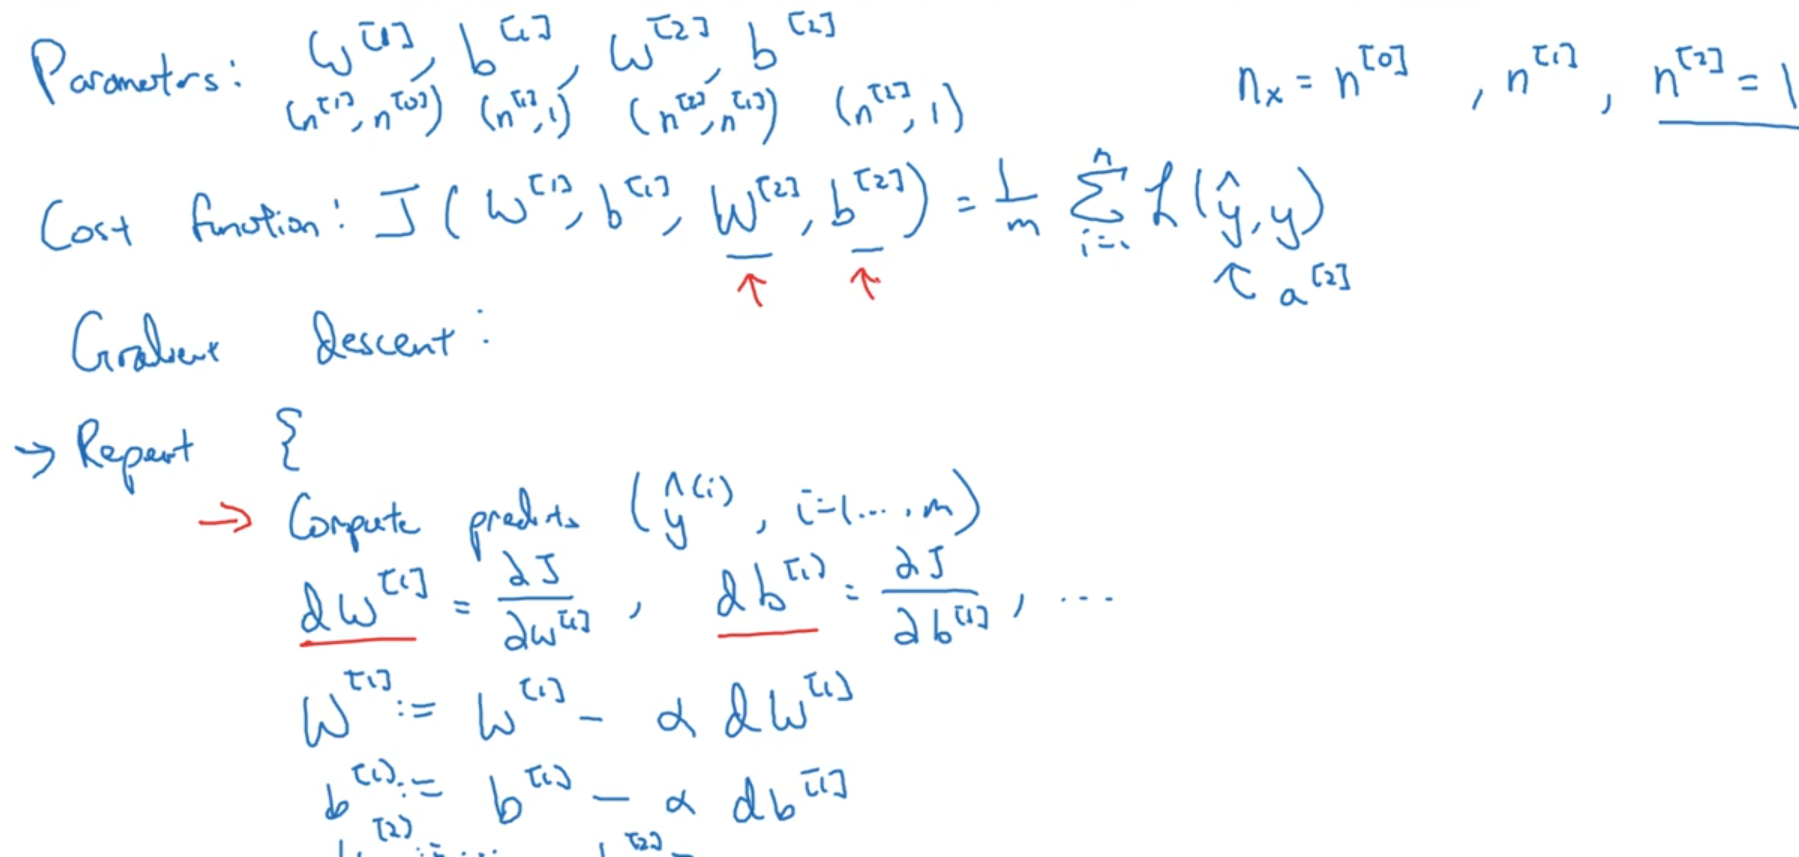 Parameters: W^[1], b^[1], W^[2], b^[2]    n_x = n^[0], n^[1], n^[2] = 1
(n^[1], n^[0]) (n^[1], 1) (n^[2], n^[1]) (n^[2], 1)
Cost function: J(W^[1], b^[1], W^[2], b^[2]) = 1/m ∑_{i=1}^n L(ŷ, y)
↑ ↑ ↖ a^[2]
Gradient descent:
→ Repeat {
→ Compute predicts (ŷ^(i), i=1...,m)
dW^[1] = ∂J/∂W^[1], db^[1] = ∂J/∂b^[1], ...
W^[1] := W^[1] - α dW^[1]
b^[1] := b^[1] - α db^[1]